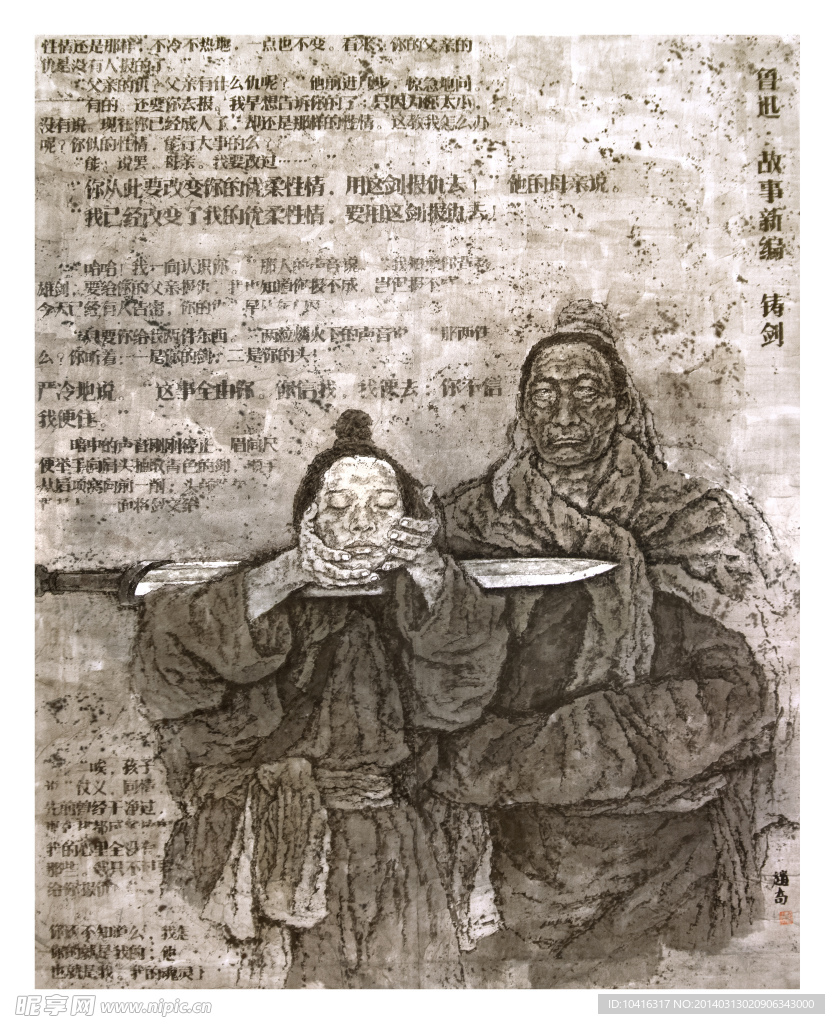 性情还是那样，不冷不热地，一点也不变。看来，你的父亲的
仇是没有人报的了。”
“父亲的仇？父亲有什么仇呢？”他前进几步，惊急地问。
“有的。还要你去报。我早想告诉你的了；只因为你太小，
没有说。现在你已经成人了，却还是那样的性情。这教我怎么办
呢？你似的性情，能行大事的么？”
“能。说罢，母亲。我要改过……。”
“你从此要改变你的优柔性情，用这剑报仇去！”他的母亲说。
“我已经改变了我的优柔性情，要用这剑报仇去！
“哈哈！我一向认识你。”那人的声音说。“我
雄剑，要给你的父亲报仇，我也知道你报不成。岂但报不
今天已经有人告密，你的仇
“只要你给我两件东西。”两粒燐火下的声音说。“那两件
么？你听着：一是你的剑，二是你的头！”
严冷地说。“这事全由你。你信我，我便去；你不信，
我便住。”
暗中的声音刚刚停止，眉间尺
便举手向肩头抽取青色的剑，顺手
从后项窝向前一削，头
面将剑交给
“唉，孩子
说。“仗义，同情，
先前曾经干净过，
我的心里全没有
那些。我只不过
给你报仇
你还不知道么，我
你的就是我的；他
也就是我。我的魂灵上
鲁迅 故事新编 铸剑
昵享网 www.nipic.cn
ID:10416317 NO:20140313020906343000